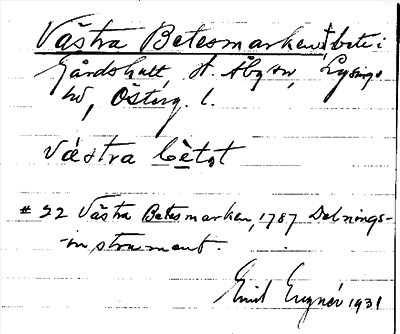 Västra Betesmarken, bete i
Gårdshult, St. Åby sn, Lysings
hd, Österg. l.
västra bètət
# 22 Västra Betesmarken, 1787 Delnings-
instrument.
Emil Eugnér 1931